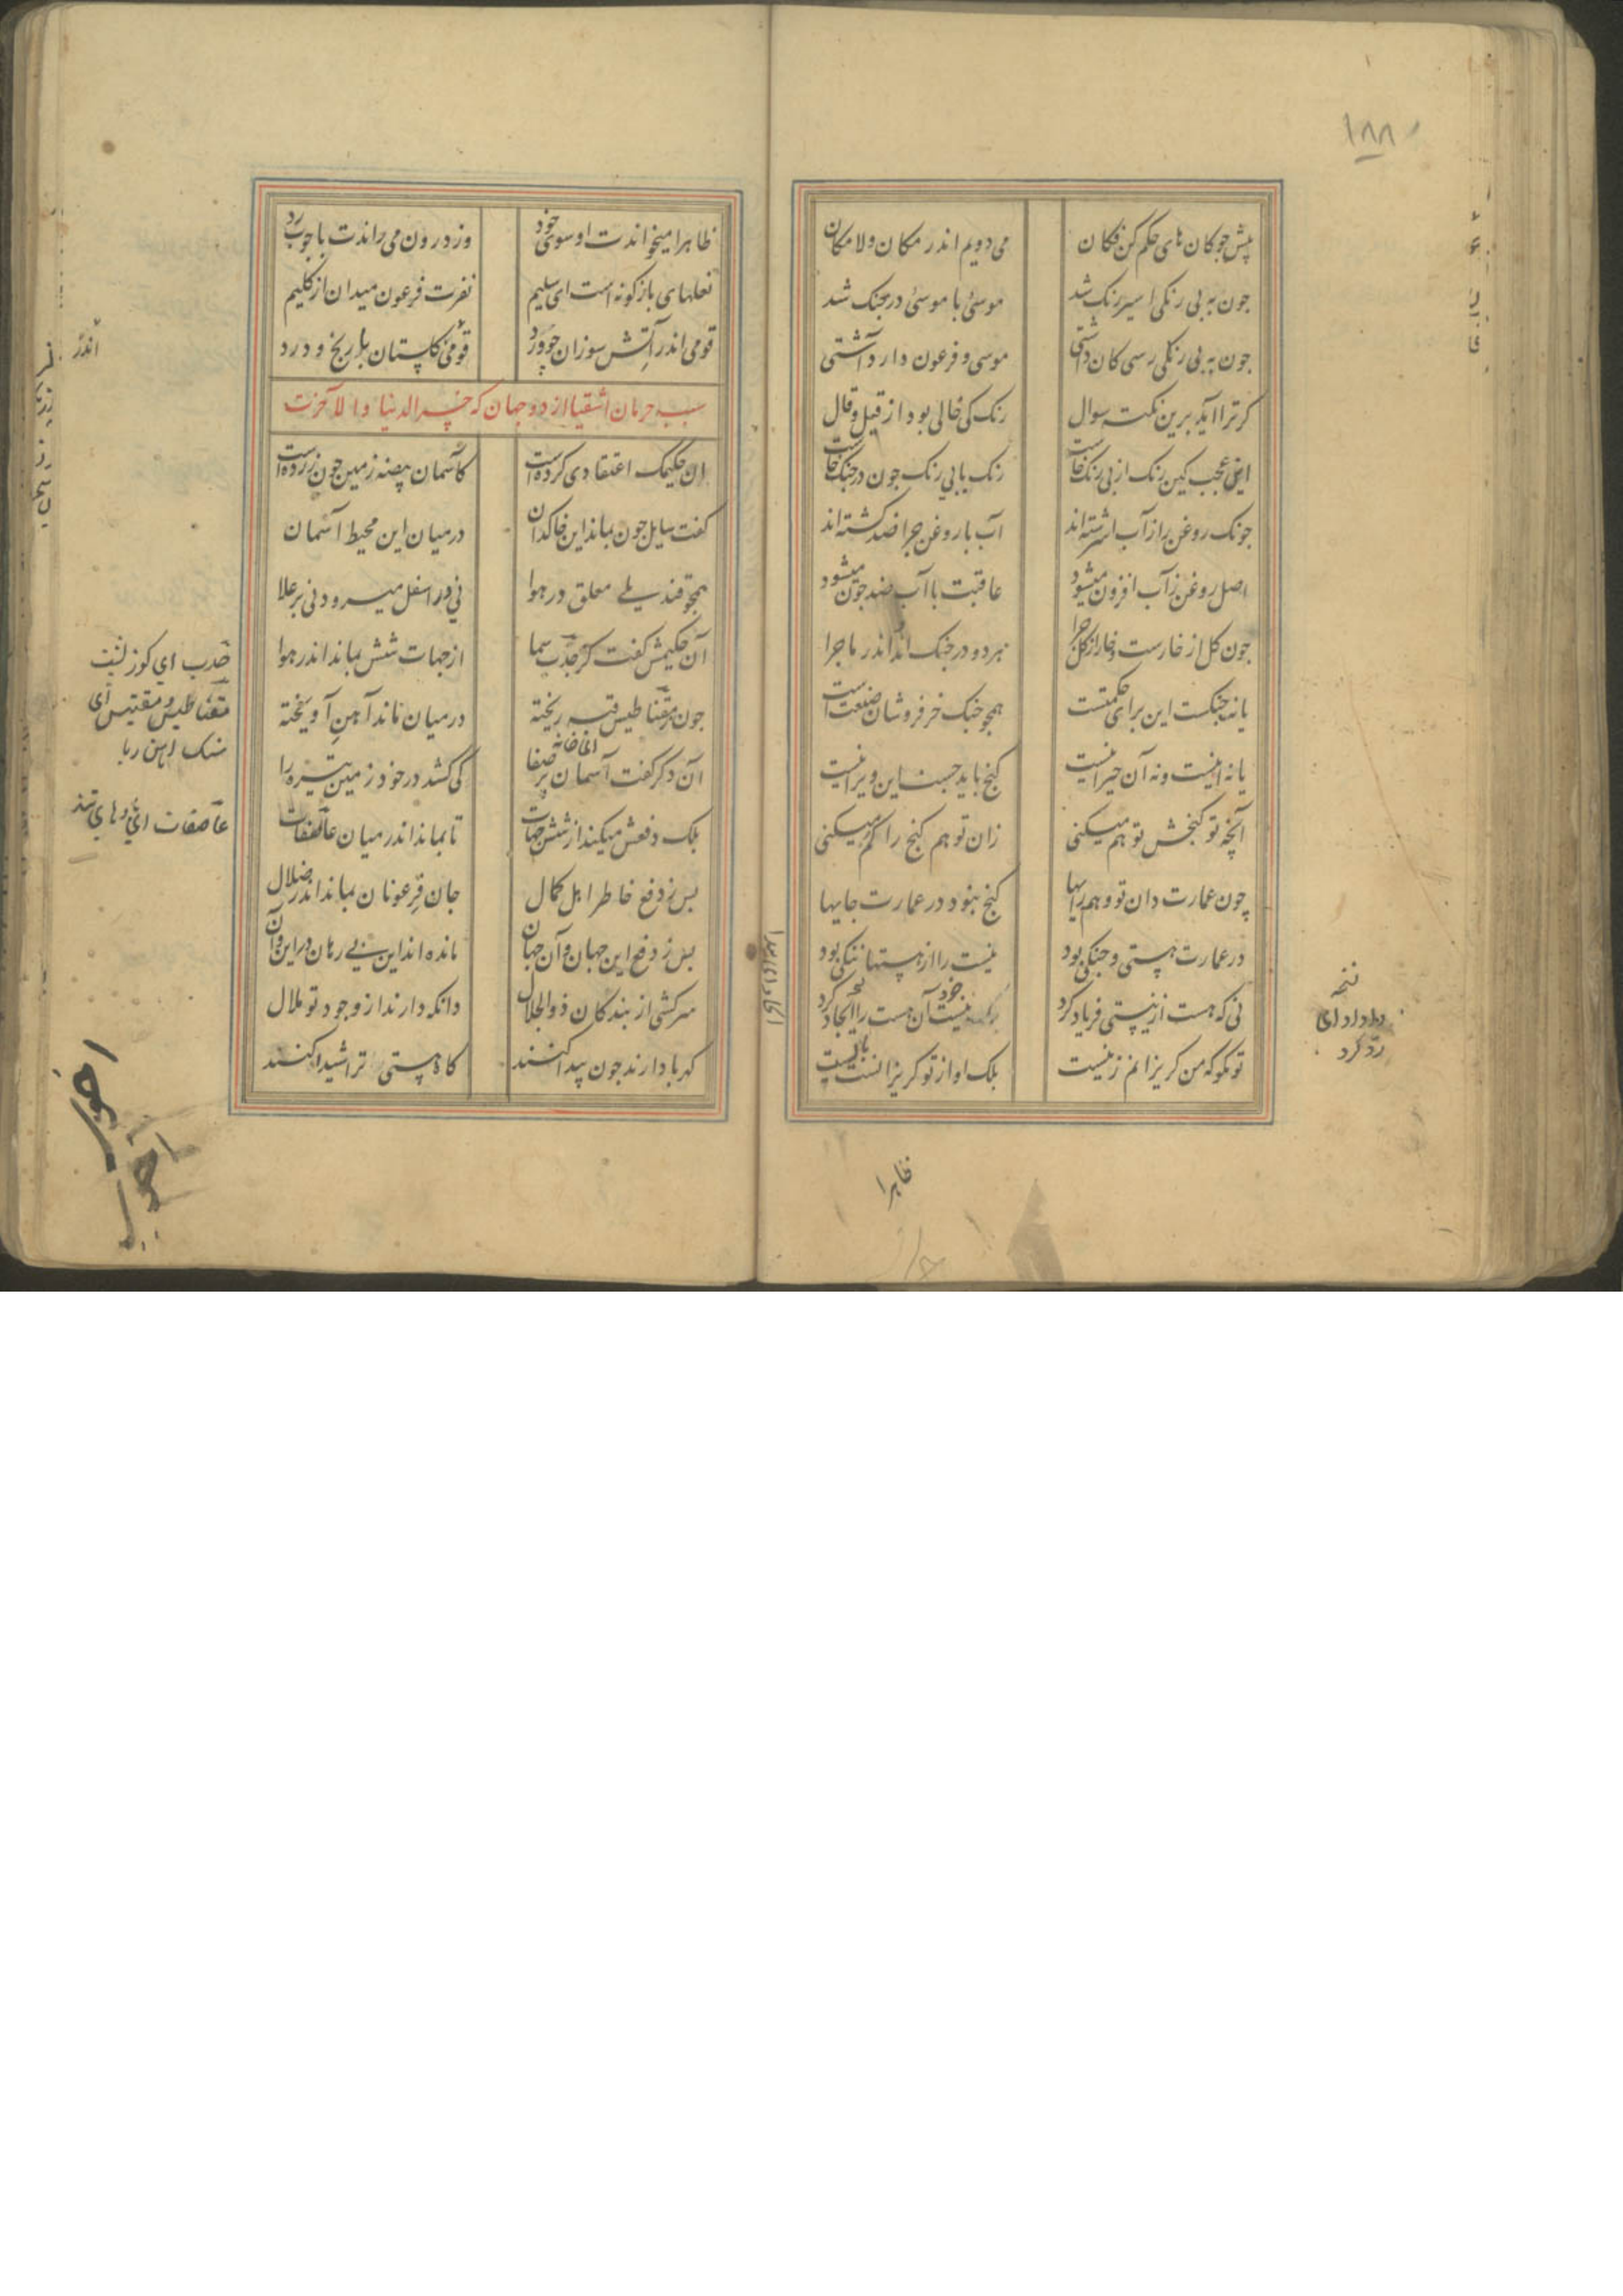 ۱۸۸
پیش جوکان های حکم کن فکان می دویم اندر مکان و لا مکان
جون به بی رنکی اسیر رنک شد موسئ با موسئ در جنک شد
جون به بی رنکی رسی کان داشتی موسی و فرعون دارد آشتی
کر ترا آید برین نکته سوال رنک کی خالی بود از قیل و قال
این عجب کین رنک از بی رنک خاست رنک با بی رنک جون در جنک خاست
جونک روغن را ز آب اسرشته اند آب با روغن جرا ضد کشته اند
اصل روغن ز آب افزون میشود عاقبت با آب ضد جون میشود
جون کل از خارست و خار از کل جرا هر دو در جنک اند اندر ماجرا
یا نه جنکست این برای حکمتست همجو جنک خر فروشان صنعت است
یا نه اینست و نه آن حیرانیست کنج باید جست این ویرانیست
آنچه تو کنجش توهم میکنی زان توهم کنج را کم میکنی
چون عمارت دان تو وهم و رایها کنج نبود در عمارت جایها
در عمارت هستی و جنکی بود نیست را از هستها ننکی بود
نی که هست از نیستی فریاد کرد بلکه نیست آن هست را ایجاد کرد
تو مکو که من کریزانم ز نیست بلک او از تو کریزانست بیست
نسخه
واداد ای
رد کرد
ظاهرا
ظاهرا میخواندت او سوی خود وز درون می راندت با جوب رد
نعلهای بازکونه است ای سلیم نفرت فرعون میدان از کلیم
قومی اندر آتش سوزان جو ورد قومی کلستان با رنج و درد
اندر
سبب حرمان اشقیا از دو جهان که خسر الدنیا و الاخرت
ان حکیمک اعتقادی کرده است کاسمان بیضه زمین جون زرده است
کفت سایل جون بماند این خاکدان در میان این محیط آسمان
همجو قندیلی معلق در هوا نی در اسفل میرود نی بر علا
آن حکیمش کفت کز جذب سما از جهات شش بماند اندر هوا
جون ز مقناطیس قبه ریخته در میان ماند آهن آویخته
آن دکر کفت آسمان پر صفا کی کشد در خود زمین تیره را
بلک دفعش میکند از شش جهات تا بماند اندر میان عاصفات
بس ز دفع خاطر اهل کمال جان فرعونان بماند اندر ضلال
بس ز دفع این جهان و آن جهان مانده اند این بی رهان در این و آن
سر کشی از بندکان ذو الجلال دانکه دارند از وجود تو ملال
کهربا دارند جون پیدا کنند کاه هستی ترا شیدا کنند
جذب ای
مقناطیس و مقنیتس ای
سنک اهن ربا
عاصفات ای بادهای تند